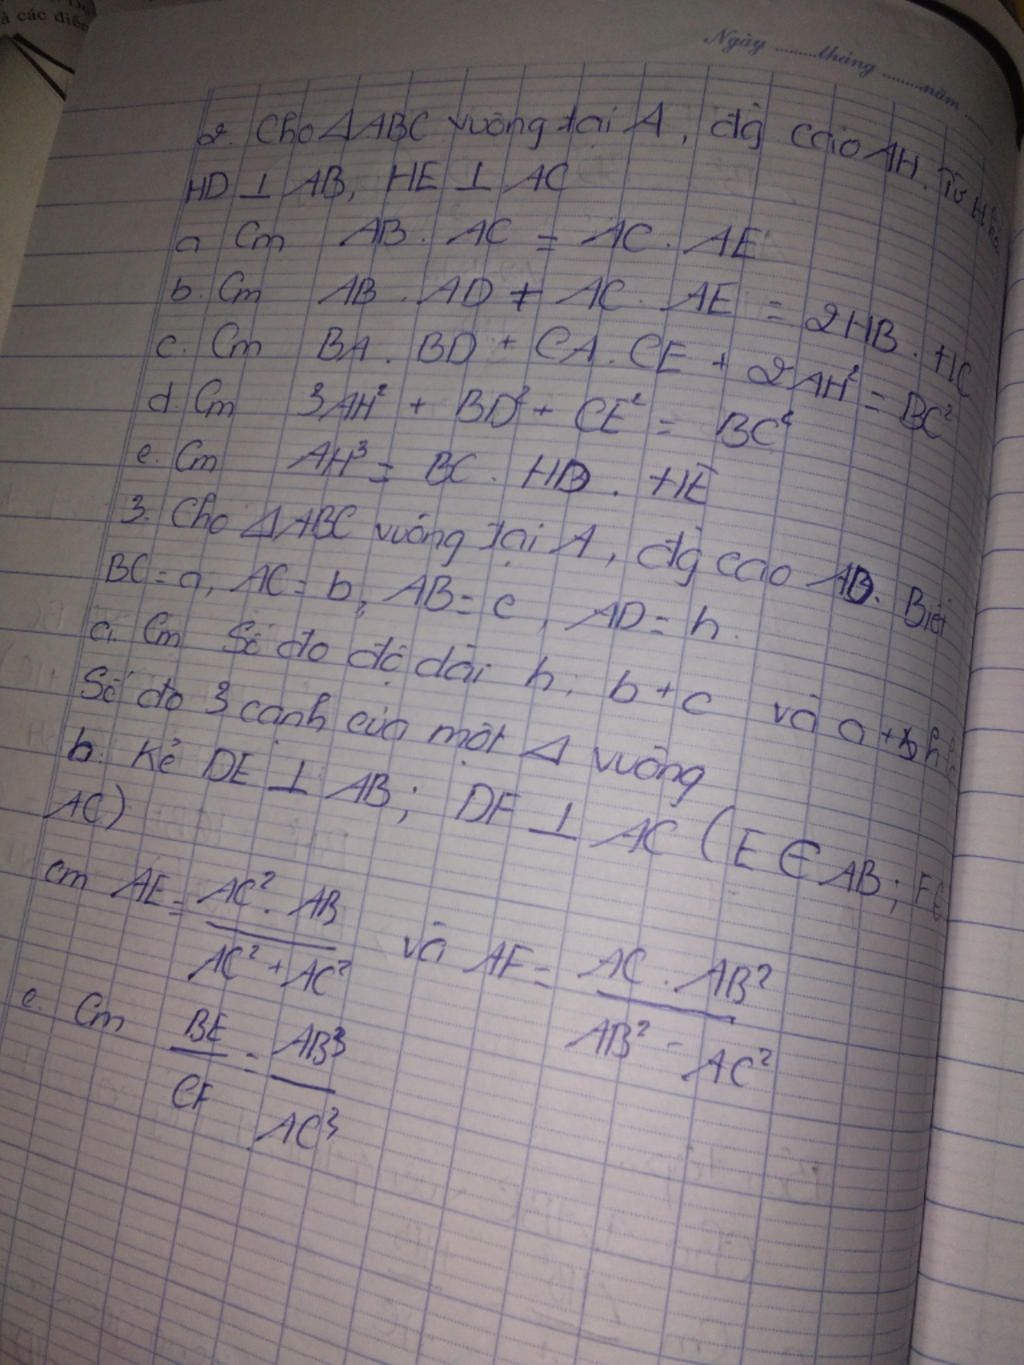 à các điể
Ngày ......... tháng ......... năm
2. Cho ΔABC vuông tại A, đg cao AH. Từ H kẻ
HD ⊥ AB, HE ⊥ AC
a Cm AB . AC = AC . AE
b. Cm AB . AD + AC . AE = 2HB . HC
c. Cm BA . BD + CA . CE + 2AH² = BC²
d. Cm 3AH² + BD² + CE² = BC²
e. Cm AH³ = BC . HD . HE
3. Cho ΔABC vuông tại A, đg cao AD. Biết
BC = a, AC = b, AB = c, AD = h.
a. Cm Số đo độ dài h; b + c và a + h
Số đo 3 cạnh của một Δ vuông
b. Kẻ DE ⊥ AB; DF ⊥ AC (E ∈ AB; F ∈
AC)
cm AE = AC² . AB / AC² + AC² và AF = AC . AB² / AB² - AC²
c. Cm BE / CF = AB³ / AC³